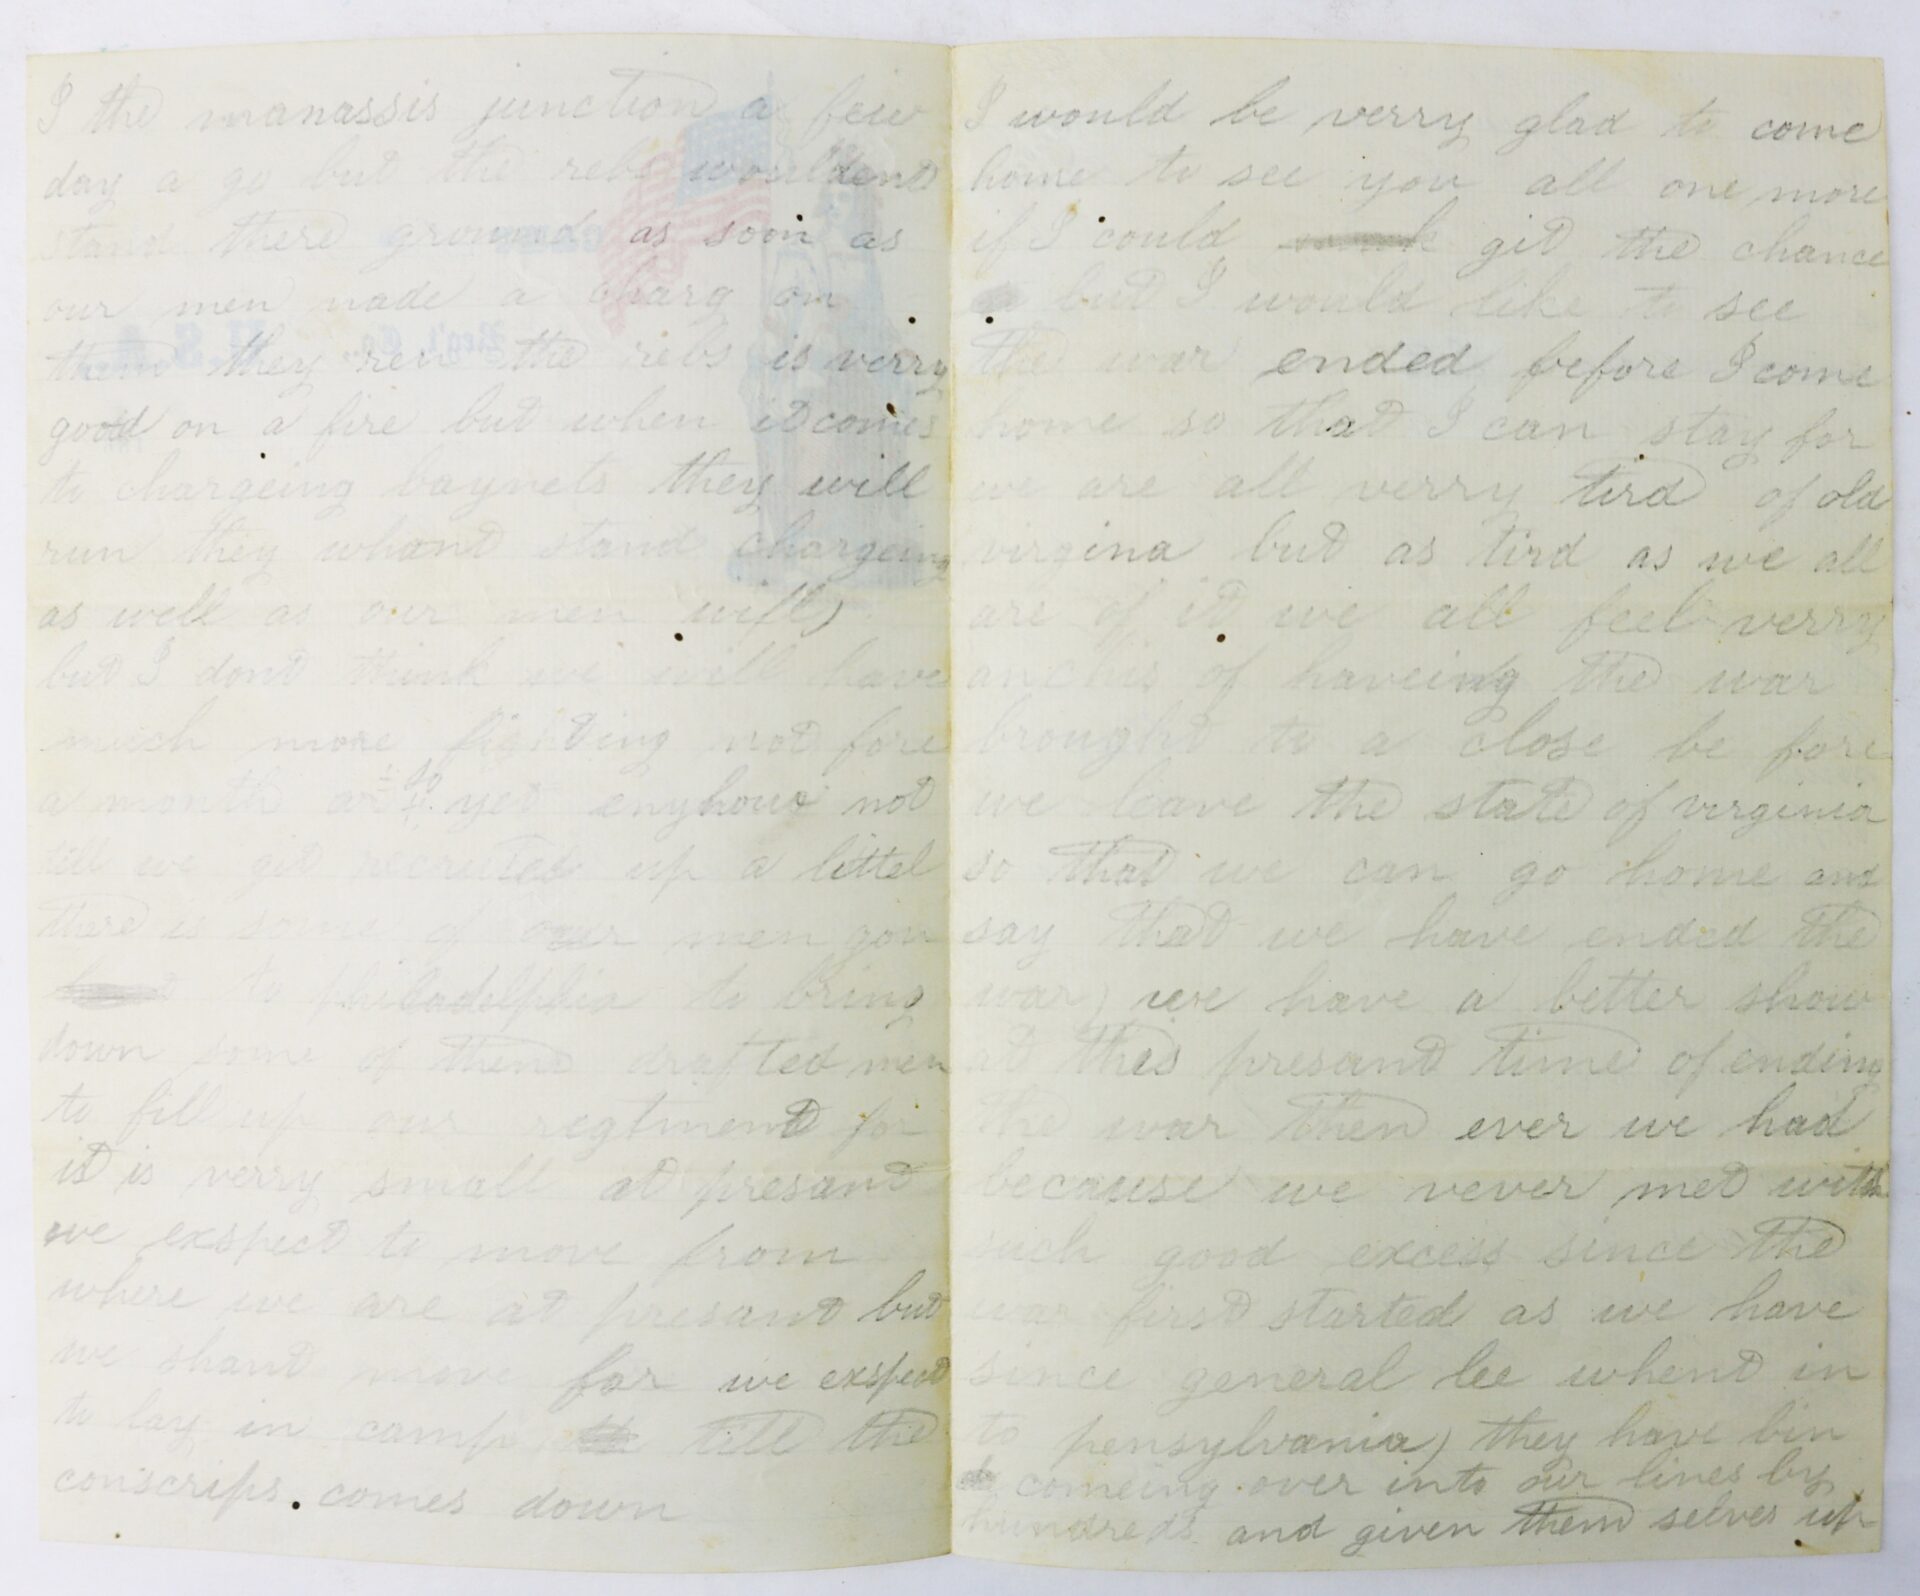 I the manassis junction a few
day a go but the rebs wouldent
stand there ground as soon as
our men made a charg on
them they ren the rebs is verry
good on a fire but when it comes
to chargeing baynets they will
run they whant stand chargeing
as well as our men will)
but I dont think we will have
much more fighting not fore
a month or so yet enyhow not
till we git recruted up a littel
there is some of ouer men gon
to philadelphia to bring
down some of them drafted men
to fill up our regtment for
it is verry small at presant
we exspect to move from
where we are at presant but
we shant move far we exspect
to lay in camp till the
conscrips. comes down
I would be verry glad to come
home to see you all one more
if I could git the chance
but I would like to see
the war ended before I come
home so that I can stay for
we are all verry tird of old
virgina but as tird as we all
are of it we all feel verry
anchis of haveing the war
brought to a close be fore
we leave the state of virginia
so that we can go home and
say that we have ended the
war) we have a better show
at this presant time of ending
the war then ever we had
because we never met with
such good excess since the
war first started as we have
since general lee whent in
to pensylvania) they have bin
comeing over into our lines by
hundreds and given them selves up